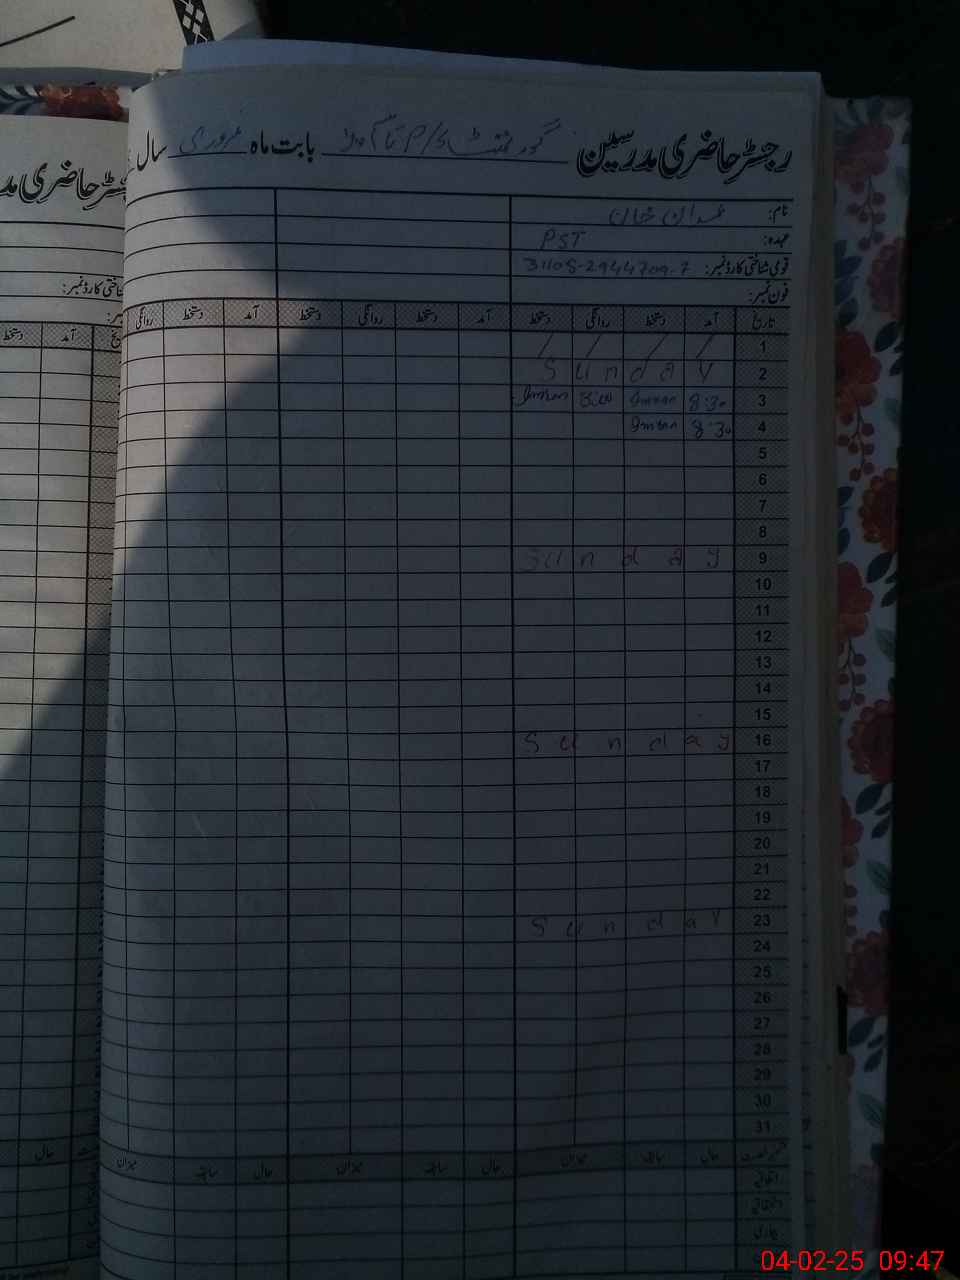 رجسٹر حاضری مدرسین گورنمنٹ P/S بابت ماہ فروری سال
نام: عمران خان
عہدہ: PST
قومی شناختی کارڈ نمبر: 31105-2944709-7
فون نمبر:
تاریخ آمد دستخط روانگی دستخط آمد دستخط روانگی دستخط آمد دستخط روانگی
1 / / / /
2 Sunday
3 8:30 Imran 3:00 Imran
4 8:30 Imran
5
6
7
8
9 Sunday
10
11
12
13
14
15
16 Sunday
17
18
19
20
21
22
23 Sunday
24
25
26
27
28
29
30
31
حال سابقہ میزان حال سابقہ میزان حال سابقہ میزان
اتفاقیہ
استحقاقیہ
بیماری
شناختی کارڈ نمبر:
آمد دستخط
حال
04-02-25 09:47